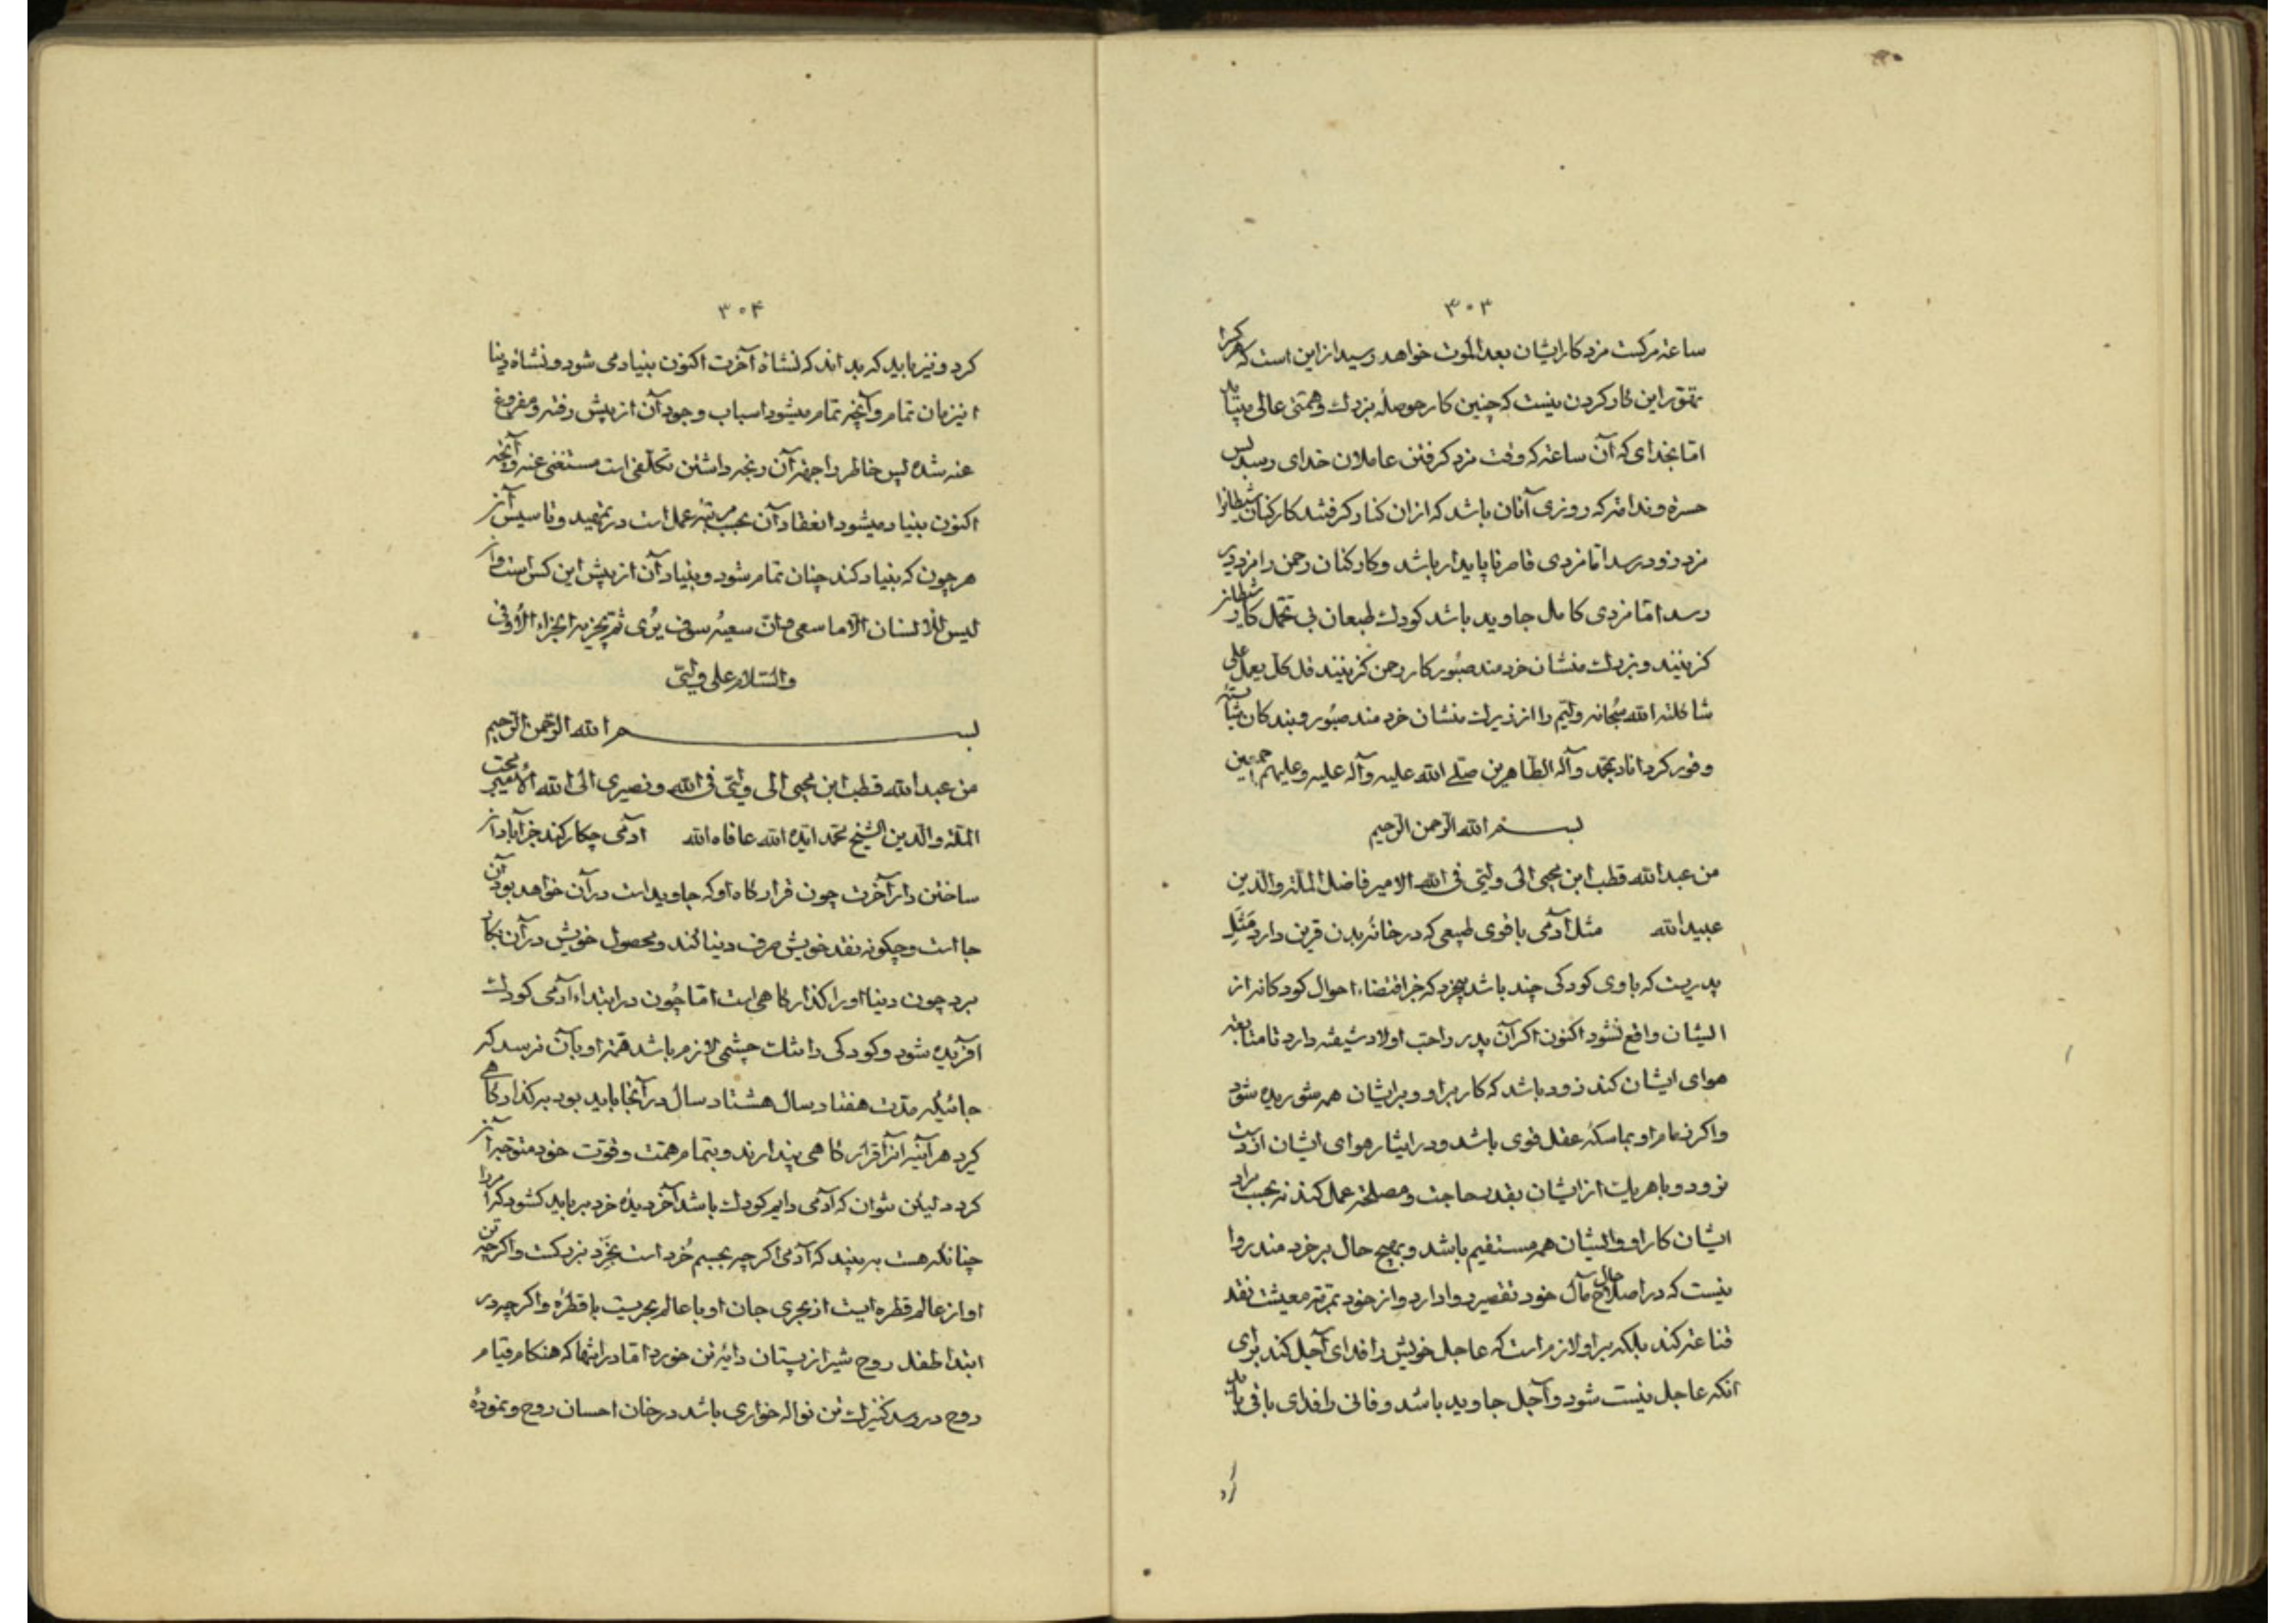 ۳۰۳
ساعته مرکست مزد کار ایشان بعد الموت خواهد رسید از این است که هر کرا
تهّور این کار کردن نیست که چنین کار حوصلهٔ بزرک و همتی عالی میباید
امّا بخدای که آن ساعة که وقت مزد کرفتن عاملان خدای رسد بس
حسرة و ندامة که روزی آنان باشد که ازان کنار کرفتند کارکنان شیطانرا
مزد زود رسد اما مزدی قاصر ناپایدار باشد و کارکنان رحمن را مزد دیر
رسد امّا مزدی کامل جاوید باشد کودک طبعان بی تحمّل کار شیطان
کزینند و بزرک منشان خردمند صبور کار رحمن کزینند قل کل یعمل علی
شاکلته الله سبحانه ولیّم را از زیرک منشان خردمند صبور و بندکان شایسته
و فور کرداناد بمحمّد وآله الطاهرین صلّی الله علیه وآله علیه وعلیهم اجمعین
بسم الله الرحمن الرحیم
من عبدالله قطب ابن محیی الی ولیّی فی الله الامیر فاضل الملّة والدین
عبیدالله مثل آدمی با قوی طبیعی که در خانهٔ بدن قرین دارد مَثَل
پدریست که باوی کودکی چند باشد بیخرد که جز اقتضاء احوال کودکانه از
ایشان واقع نشود اکنون اکر آن پدر را حبّ اولاد شیفته دارد تا متابعة
هوای ایشان کند زود باشد که کار براو و برایشان همه شوریده شود
واکر زمام او بماسکهٔ عقل قوی باشد و در ایثار هوای ایشان از دست
نرود و باهریک از ایشان بقدر حاجت و مصلحة عمل کند نه بحسب مراد
ایشان کار او و ایشان همه مستقیم باشد و بهیچ حال بر خردمند روا
نیست که در اصلاح حال مآل خود تقصیر روا دارد و از خود بمرتبه معیشت نقد
قناعة کند بلکه براو لازم است که عاجل خویش را فدای آجل کند برای
انکه عاجل نیست شود و آجل جاوید باشد و فانی را فدای باقی باید
کرد
۳۰۴
کرد و نیز باید که بداند که نشاة آخرت اکنون بنیاد می شود و نشاة دنیا
این زمان تمام و آنچه تمام میشود اسباب وجود آن از پیش رفته و مفروغ
عنه شده پس خاطر را جهة آن رنجه داشتن تکلّفی است مستغنی عنه و آنچه
اکنون بنیاد میشود انعقاد آن بحسب مرتبهٔ عمل است در تمهید و تاسیس آن
هر چون که بنیاد کند چنان تمام شود و بنیاد آن از پیش این کس است و از
لیس للانسان الّا ما سعی وانّ سعیه سوف یُری ثم یجزیه الجزاء الاوفی
والسّلام علی ولیّی
بسم الله الرّحمن الرّحیم
من عبدالله قطب ابن محیی الی ولیّی فی الله ونصیری الی الله الامیر محبّ
الملّة والدین الشیخ محمّد ایّده الله عافاه الله ادمی چکار کند جز آباد
ساختن دار آخرت چون قرار کاه او که جاوید است در آن خواهد بود آن
جا است و چکونه نقد خویش صرف دنیا کند و محصول خویش در آن بکار
برد چون دنیا اورا کذارکاهی است امّا چون در ابتداء آدمی کودک
آفریده شود و کودکی را تنک چشمی لازم باشد همّة او بآن نرسد که
جائیکه مدّت هفتاد سال هشتاد سال در آنجا باید بود بر کذارکاهی
کیرد هر آینه آنرا قرار کاهی پندارند و بتمام همّت و قوّت خود متوجّه آن
کردد لیکن نتوان که آدمی دایم کودک باشد آخر دیدهٔ خرد برباید کشود که مرد را
چنانکه هست به بیند که آدمی اکرچه بجسم خُرد است بخِرَد بزرکست و اکرچه تن
او از عالم قطره ایست از بحری جان او با عالم بحریست با قطرهٔ و اکرچه در
ابتدا طفل روح شیر از پستان دایهٔ تن خورد امّا در انتها که هنکام قیام
روح در رسد کنیزک تن نواله خواری باشد در خان احسان روح و نمودهٔ